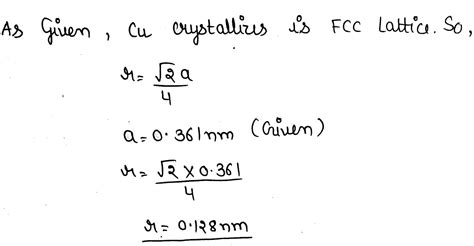 As Given, Cu crystallizes is FCC Lattice. So,
r = √2 a
4
a = 0.361nm (Given)
r = √2 × 0.361
4
r = 0.128nm